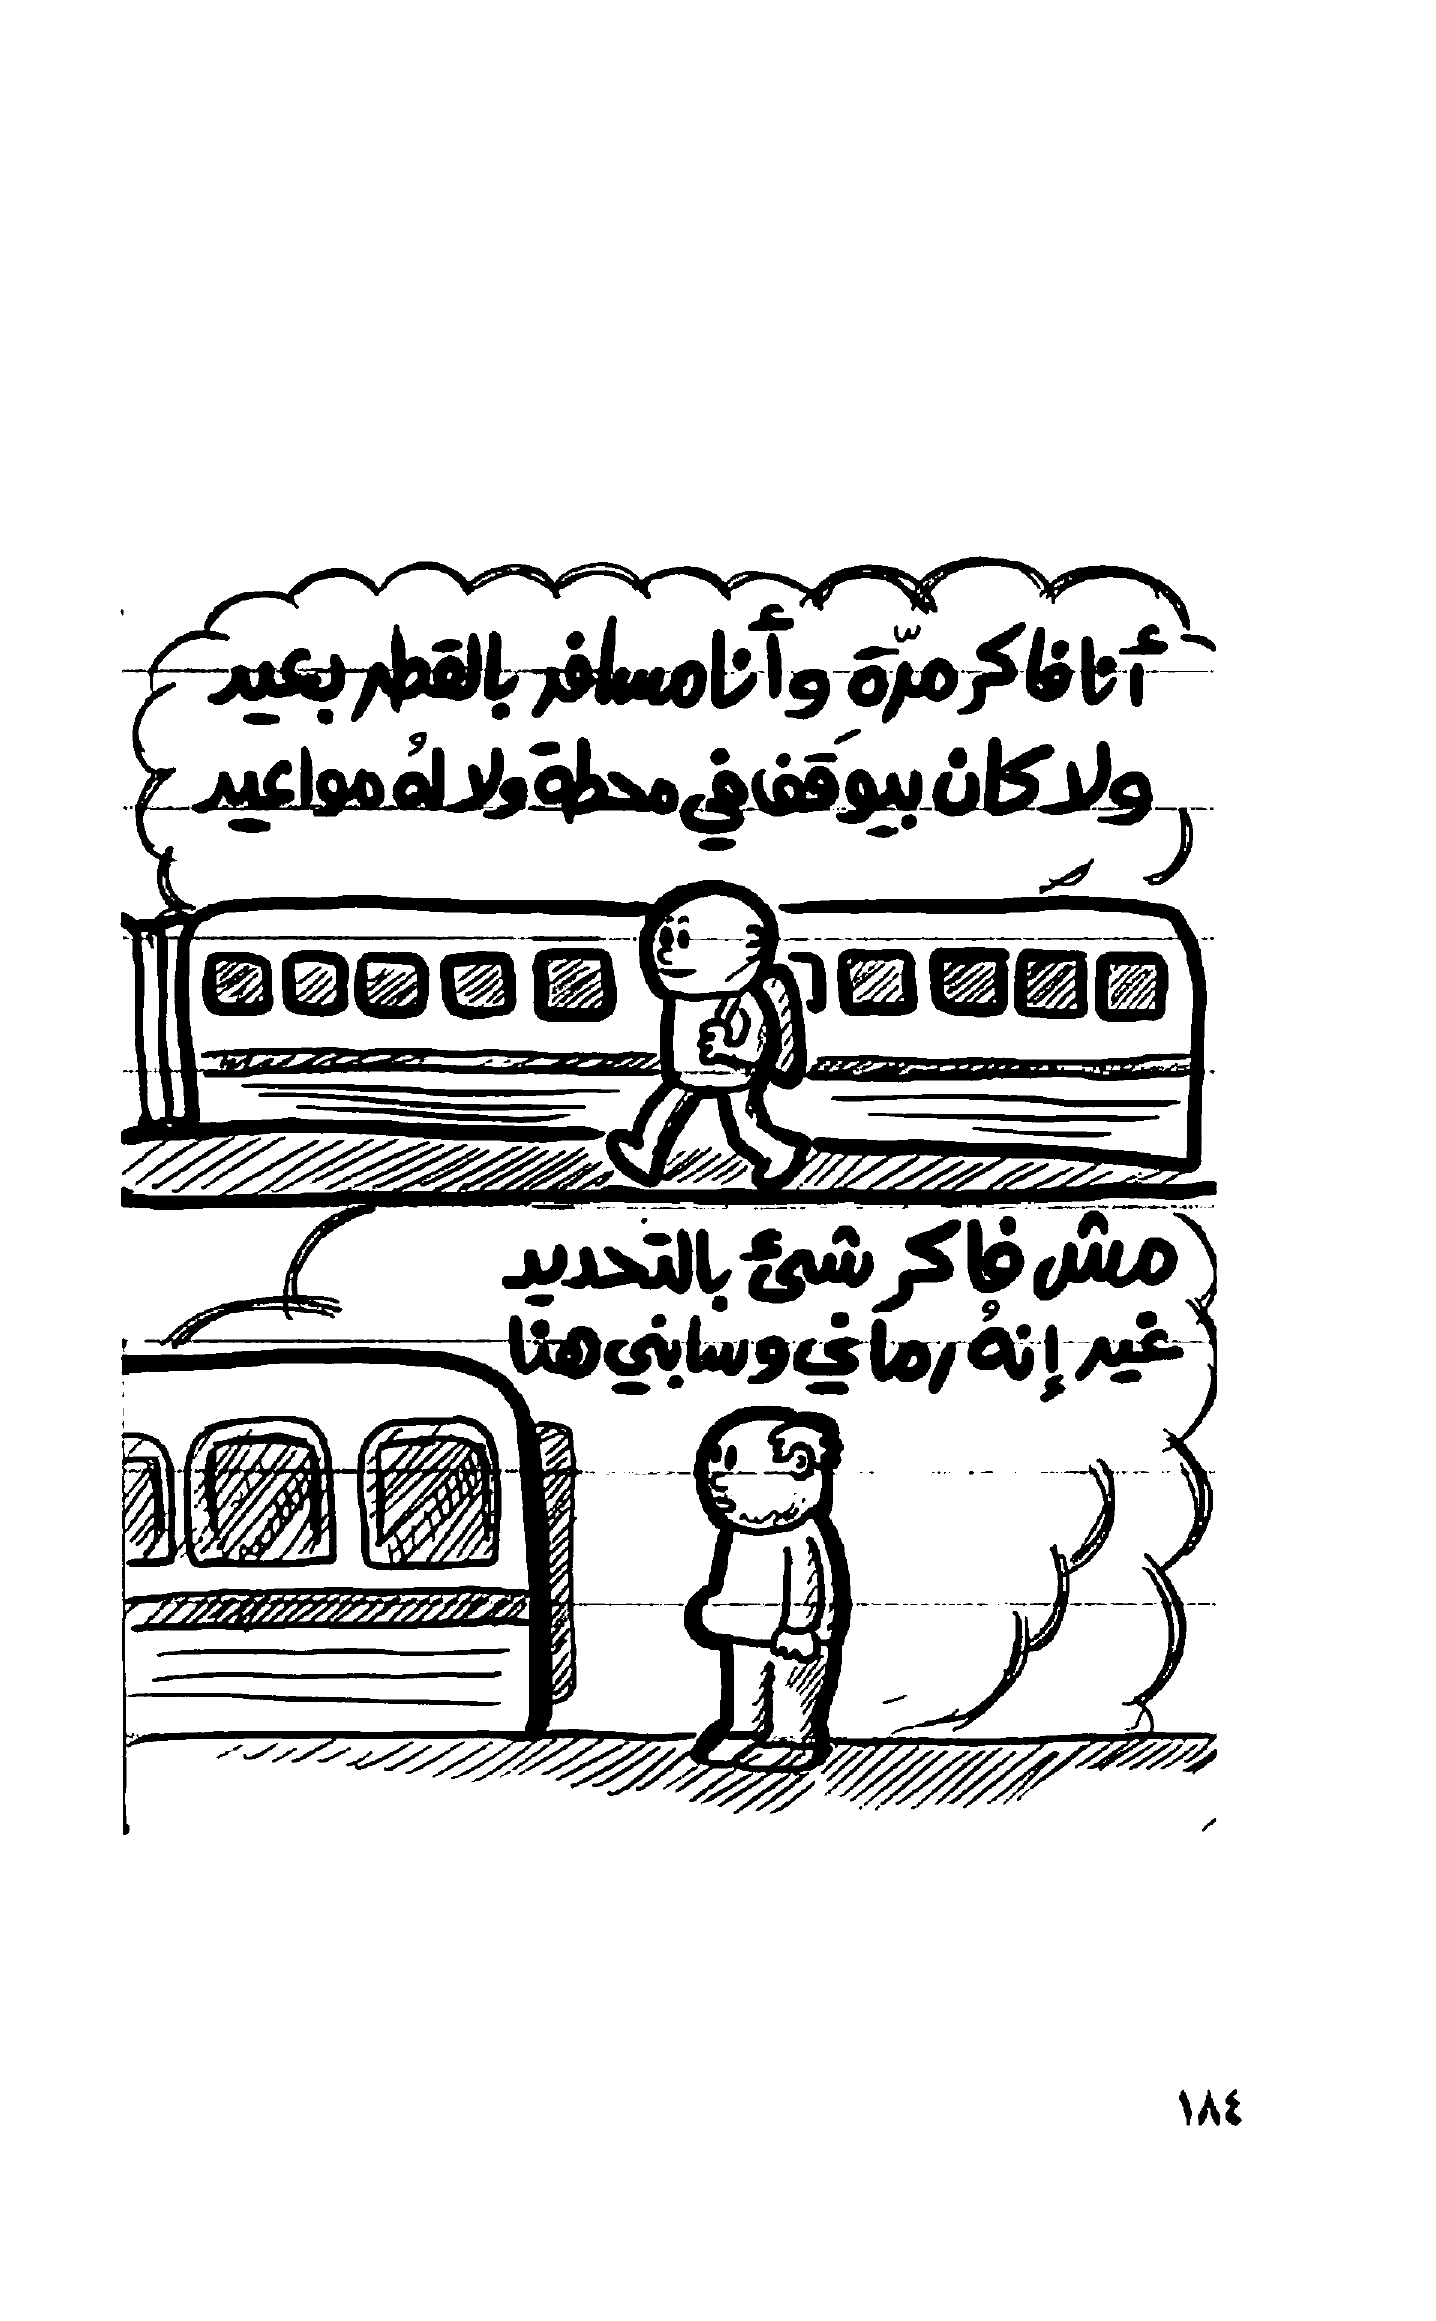 أنا فاكر مرّة وأنا مسافر بالقطر بعيد
ولا كان بيوقَف في محطة ولا لهُ مواعيد
مش فاكر شئ بالتحديد
غير إنهُ رماني وسابني هنا
١٨٤